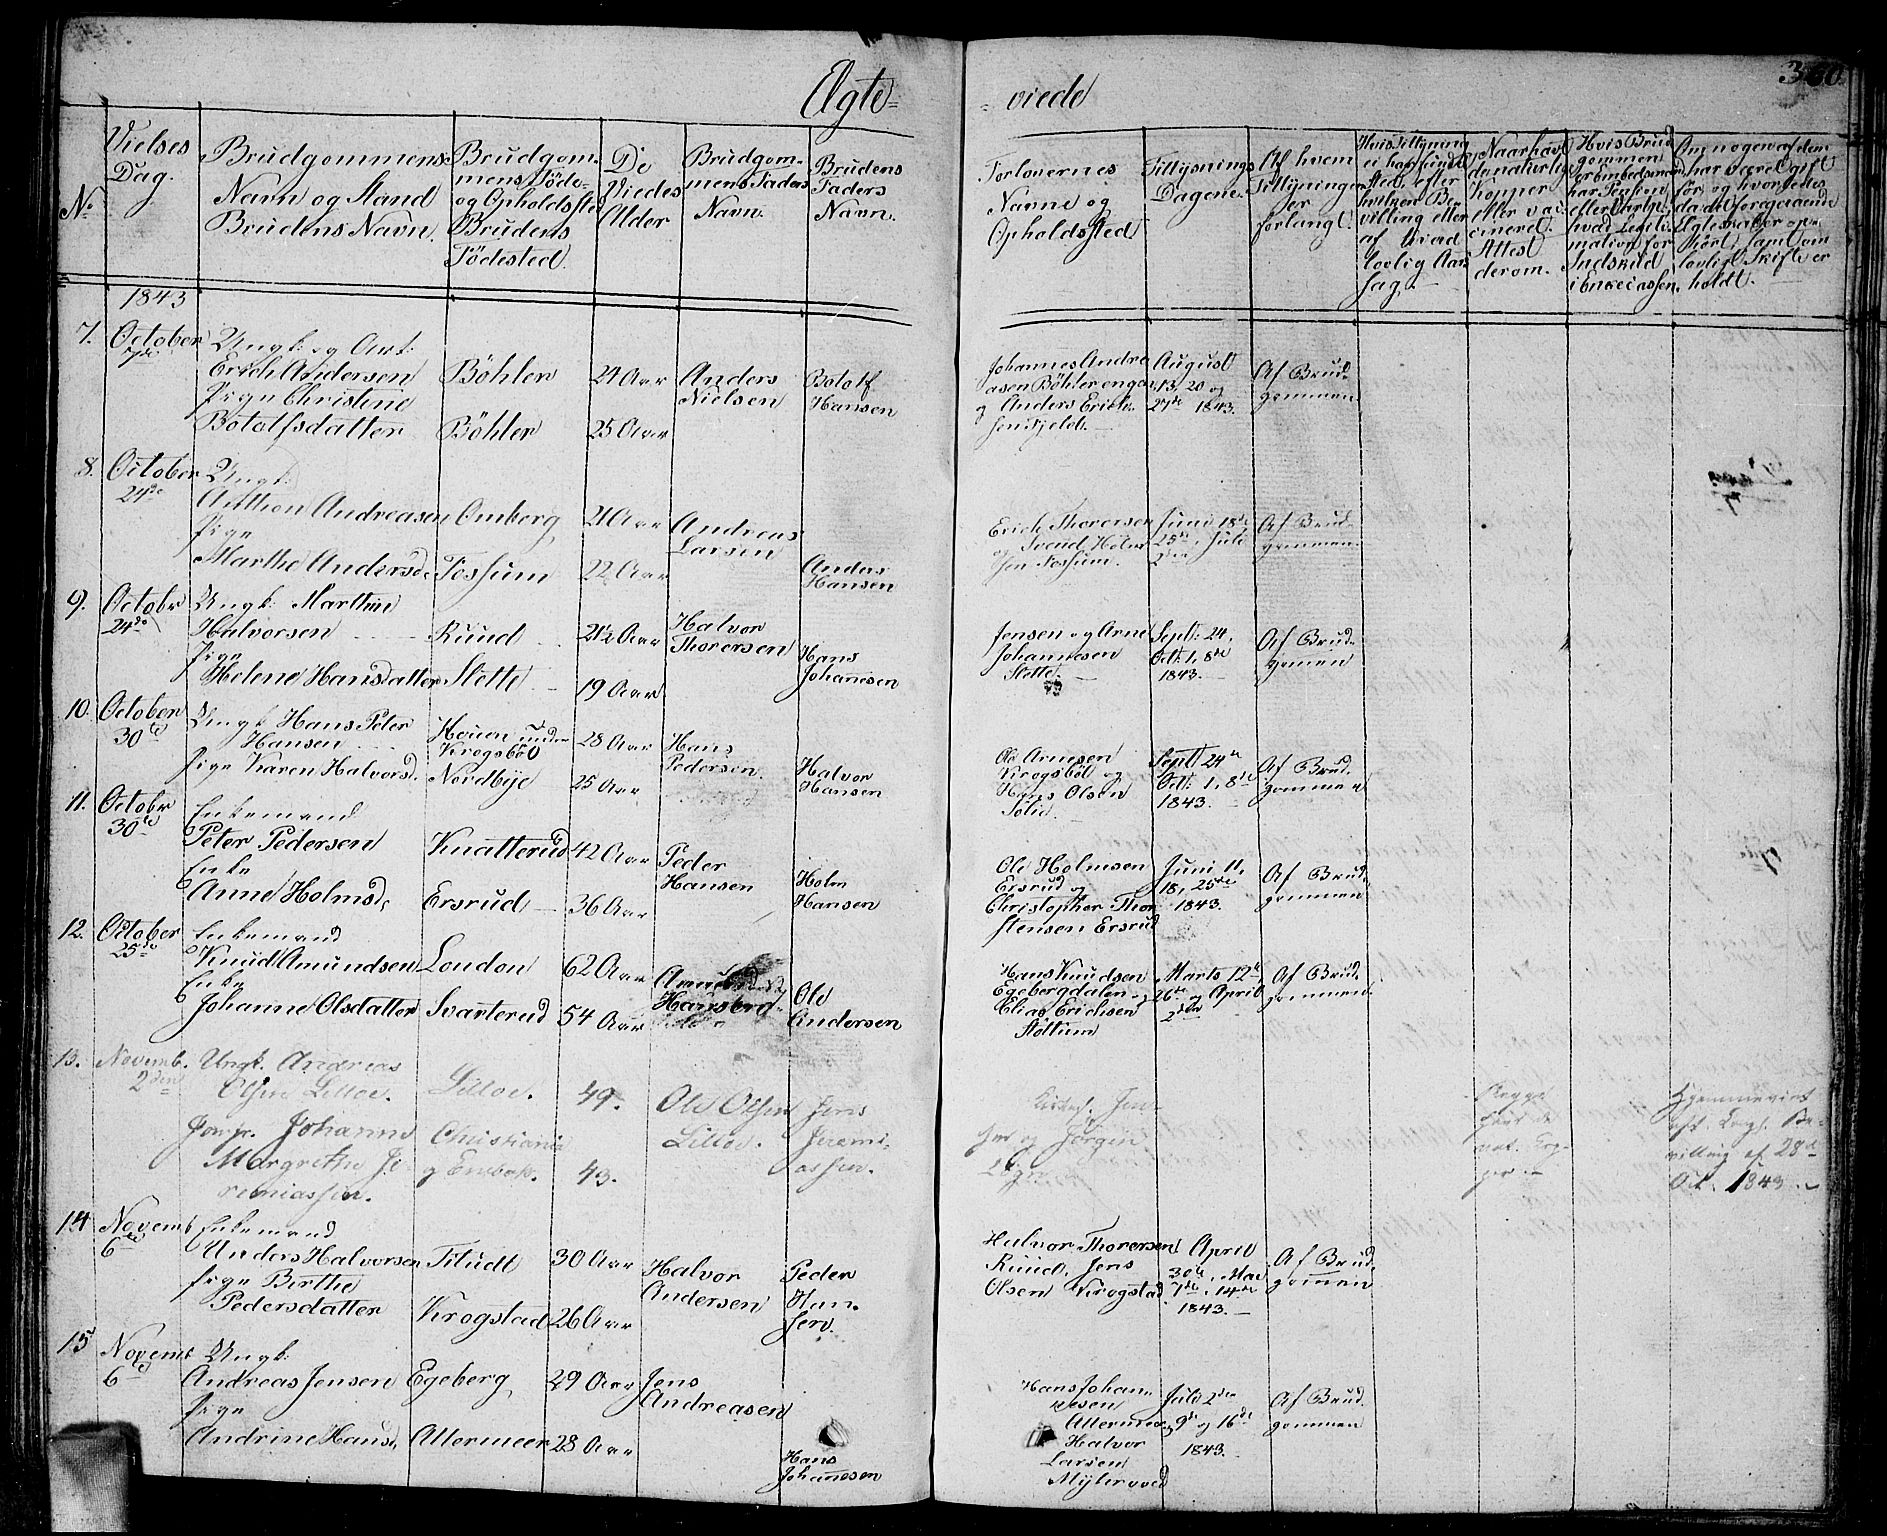 Ægte=
=viede
360.
No
Vielses
Dag.
Brudgommens
Navn og Stand
Brudens Navn.
Brudgom-
mens Föde-
og Opholdsted
Brudens
Födested.
De
Viedes
Alder
Brudgom-
mens Faders
Navn.
Brudens
Faders
Navn.
Forlovernes
Navne og
Opholdssted
Tillysnings
Dagene.
Af hvem
Tillysningen
er
forlangt.
Hvis Tillysning
ei har fundet
Sted, efter
hvilken Be-
villing eller
af hvad
lovlig Aar-
sag.
Naar havt
de naturlige
Kopper
eller vac-
cineret.
Attest
derom.
Hvis Brud-
gommen
har
hvad Legiti-
mation for
Indskud
i Enkecassen.
Om nogen af dem
har være Egift
før, og hvorledes
da det foregaaende
Ægteskab er op-
hört, samt om
lovligt Skifte er
holdt.
1843
7. October
7de
Ungk: og Arb:
Erich Andersen
Pige Christine
Botolfsdatter
Böhler
Böhler
24 Aar
25 Aar
Anders
Nielsen
Botolf
Hansen
Johannes Andre-
asen Böhlerengen
og Anders Erich-
sen Fjeld.
August
13, 20 og
27de 1843.
Af Brud-
gommen
8. October
24de
Ungk:
Anthon Andreasen
Pige
Marthe Andersd.
Omberg
Fossum
21 Aar
22 Aar
Andreas
Larsen
Anders
Hansen
Erich Thorersen
og Svend Holm-
sen Fossum.
Juni 18de
25de, Juli
2den
Af Brud-
gommen.
9. Octobr
24de
Ungk: Marthin
Halvorsen
Pige
Helene Hansdatter
Ruud
Slette
21½ Aar
19 Aar
Halvor
Thorersen
Hans
Johannesen
Jensen og Arne
Johannesen
Slette.
Sept: 24,
Oct: 1, 8de
1843.
Af Brud-
gommen
10. October
30te
Ungk: Hans Peter
Hansen
Pige Karen Halvorsd.
Heien under
Krogsböl
Nordbye
28 Aar
25 Aar
Hans
Pedersen.
Halvor
Hansen
Ole Arnesen
Krogsböl og
Hans Olsen
Solie.
Sept: 24de
Oct: 1, 8de
1843.
Af Brud-
gommen
11. Octobr
30te
Enkemand
Peter Pedersen
Enke
Anne Holmsd.
Knatterud
Ersrud
42 Aar
36 Aar
Peder
Hansen
Holm
Hansen
Ole Holmsen
Ersrud og
Christopher Thor-
stensen Ersrud
Juni 11,
18, 25de
1843.
Af Brud-
gommen
12. October
25de
Enkemand
Knud Amundsen
Enke
Johanne Olsdatter
London
Svarterud
62 Aar
54 Aar
Ole
Andersen
Hans Knudsen
Egebergdalen og
Elias Erichsen
Stoltum
Marts 12te
26de og April
2den
Af Brud-
gommen
13. Novemb.
2den
Ungk. Andreas
Olsen Lilloe.
Jomfr. Johanne
Margrethe Je-
remiassen.
Lilloe.
Christiania
49.
43.
Ole Olsen
Lilloe.
Jens
Jeremi-
assen.
og Jörgen
Begge
havt de
nat. Kop-
per.
Hjemmeviet
eft. Kongl. Be-
villing af 28de
Oct. 1843.
14. Novemb
6te
Enkemand
Anders Halvorsen
Pige Birthe
Pedersdatter
Titudt
Krogstad
30 Aar
26 Aar
Halvor
Andersen
Peder
Han-
sen.
Halvor Thorersen
Ruud, Jens
Olsen Krogstad
April
30te, Mai
7de, 14de
1843.
Af Brud-
gommen
15 Novemb
6te
Ungk:
Andreas Jensen
Pige
Andrine Hansd.
Egeberg
Altermeer
29 Aar
28 Aar
Jens
Andreasen
Hans
Johannesen
Hans Johan-
nesen
Altermeer
Halvor
Larsen
Mylerwed
Juli 2den
9de og 16de
1843.
Af Brud-
gommen